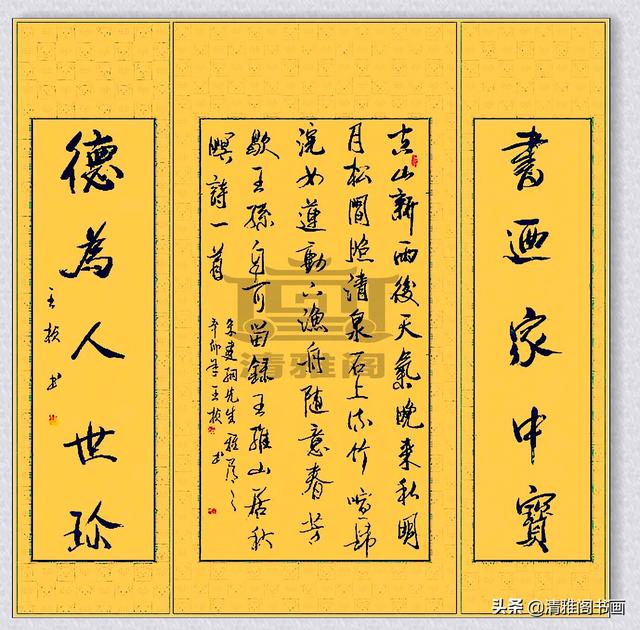 書画家中寶
空山新雨後天氣晚来秋明
月松間照清泉石上流竹喧歸
浣女蓮動下漁舟随意春芳
歇王孫自可留録王維山居秋
暝詩一首
先生雅
辛卯
德為人世珍
书
清雅阁
头条 @清雅阁书画